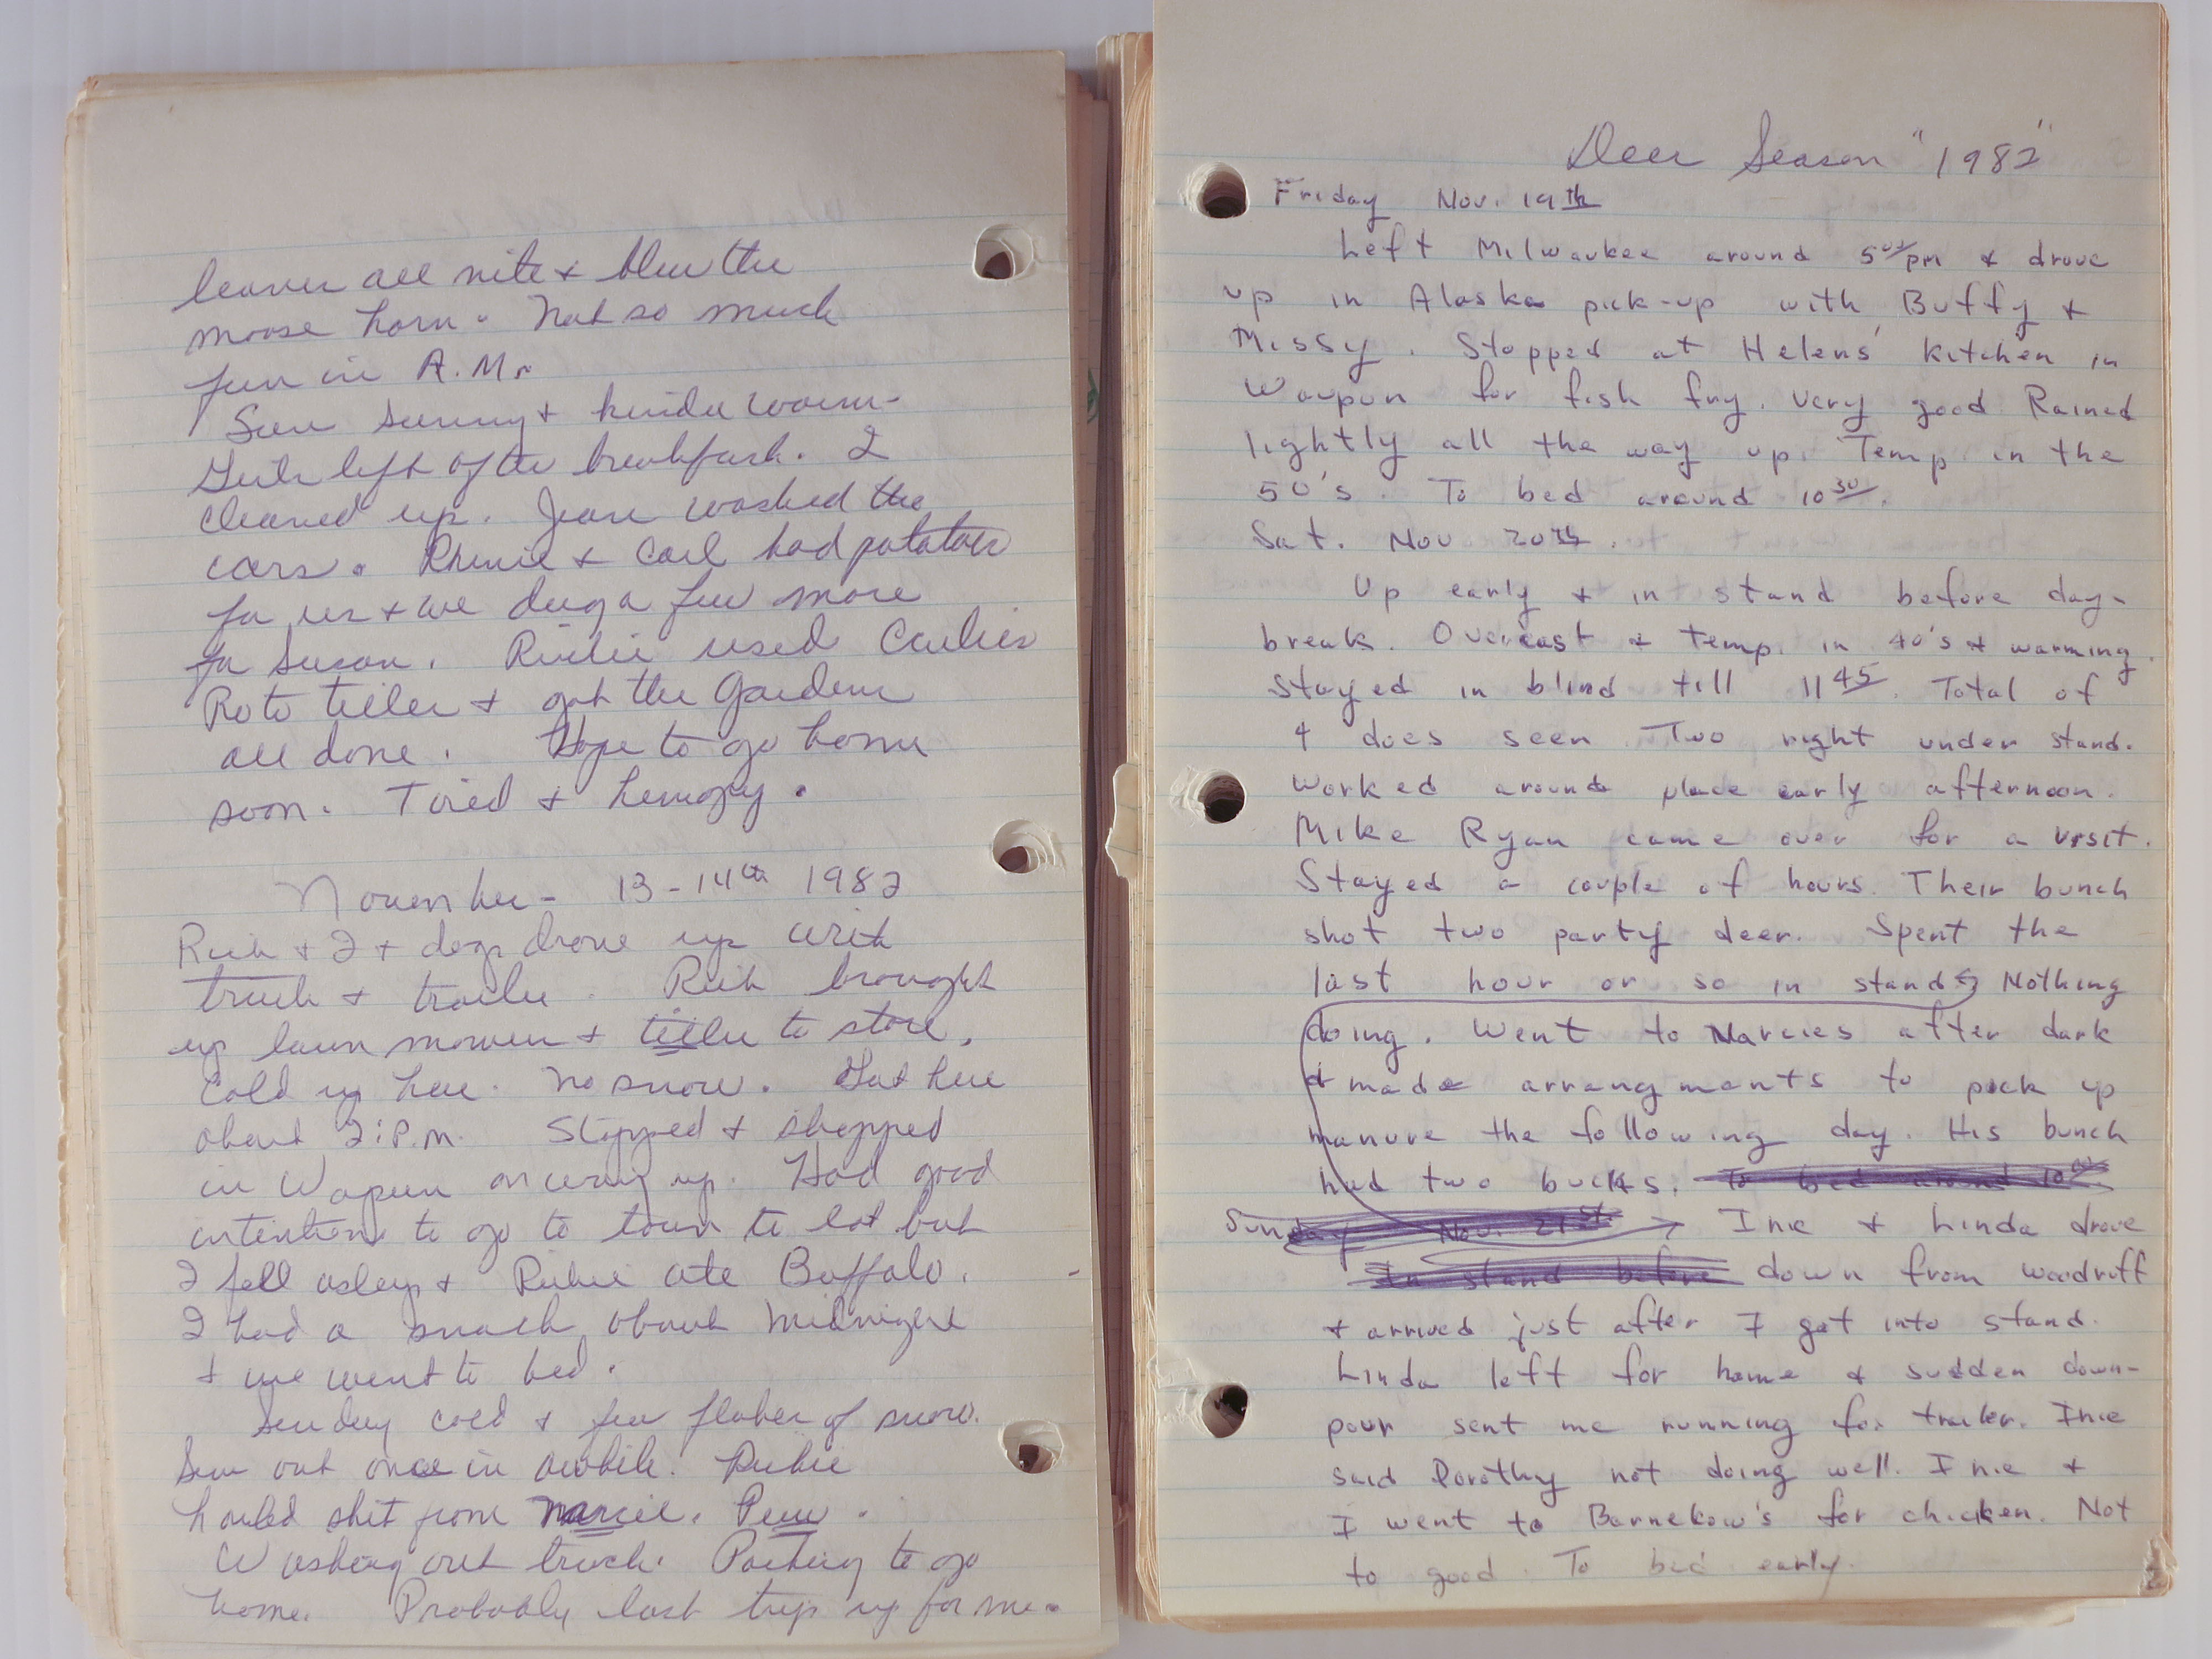 leaves all nite & blew the
moose horn. Not so much
fun in A.M.
Sun sunny & kinda warm-
Girls left after breakfast. I
cleaned up. Jean washed the
cars. & Carl had potatoes
for us & we dug a few more
for Susan. Richie used Carlies
Roto tiller & got the Garden
all done. Hope to go home
soon. Tired & hungry.
November - 13-14th 1982
Rich & I & dogs drove up with
truck & trailer. Rich brought
up lawn mower & tiller to store.
Cold up here. No snow. Got here
about 2:P.M. Stopped & shopped
in Wapun on way up. Had good
intentions to go to town to eat but
I fell asleep & Richie ate Buffalo.
I had a snack about Midnight
& we went to bed.
Sunday cold & few flakes of snow.
Sun out once in awhile. Richie
hauled shit from Marcie. Peuu.
Washing out truck. Packing to go
home. Probably last trip up for me.
Deer Season "1982"
Friday Nov. 19th
Left Milwaukee around 5 00 pm & drove
up in Alaska pick-up with Buffy &
Missy. Stopped at Helens' Kitchen in
Waupun for fish fry. Very good Rained
lightly all the way up. Temp in the
50's. To bed around 10 30.
Sat. Nov 20th.
Up early & in stand before day-
break. Overcast & temp. in 40's & warming.
Stayed in blind till 11 45. Total of
4 does seen. Two right under stand.
Worked around place early afternoon.
Mike Ryan came over for a visit.
Stayed a couple of hours. Their bunch
shot two party deer. Spent the
last hour or so in stand Nothing
doing. Went to Marcies after dark
& made arrangments to pick up
manure the following day. His bunch
had two bucks. To bed around 10 00.
Sunday Nov. 21st Inie & Linda drove
In stand before down from Woodruff
& arrived just after I got into stand.
Linda left for home & sudden down-
pour sent me running for trailer. Inie
said Dorothy not doing well. Inie &
I went to Barnekow's for chicken. Not
to good. To bed early.